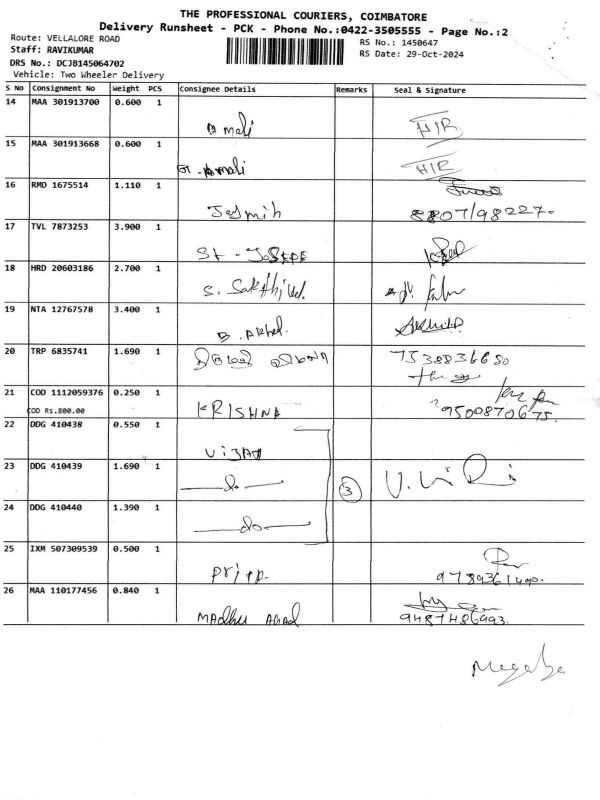 THE PROFESSIONAL COURIERS, COIMBATORE
Delivery Runsheet - PCK - Phone No.:0422-3505555 - Page No.:2
Route: VELLALORE ROAD
RS No.: 1450647
Staff: RAVIKUMAR
RS Date: 29-Oct-2024
DRS No.: DCJB145064702
Vehicle: Two Wheeler Delivery
S No Consignment No Weight PCS Consignee Details Remarks Seal & Signature
14 MAA 301913700 0.600 1
mali H/R
15 MAA 301913668 0.600 1
mali H/R
16 RMD 1675514 1.110 1
Jesmih 8807198227-
17 TVL 7873253 3.900 1
St - Joseph
18 HRD 20603186 2.700 1
S. Sakthivel.
19 NTA 12767578 3.400 1
B.
20 TRP 6835741 1.690 1
7538836680
21 COD 1112059376 0.250 1
COD Rs.800.00
KRISHNA 9500870675.
22 DDG 410438 0.550 1
VIJAY
23 DDG 410439 1.690 1
-do- 3
24 DDG 410440 1.390 1
-do-
25 IXM 507309539 0.500 1
Priya. 9789361490.
26 MAA 110177456 0.840 1
Madhu 9487486993.